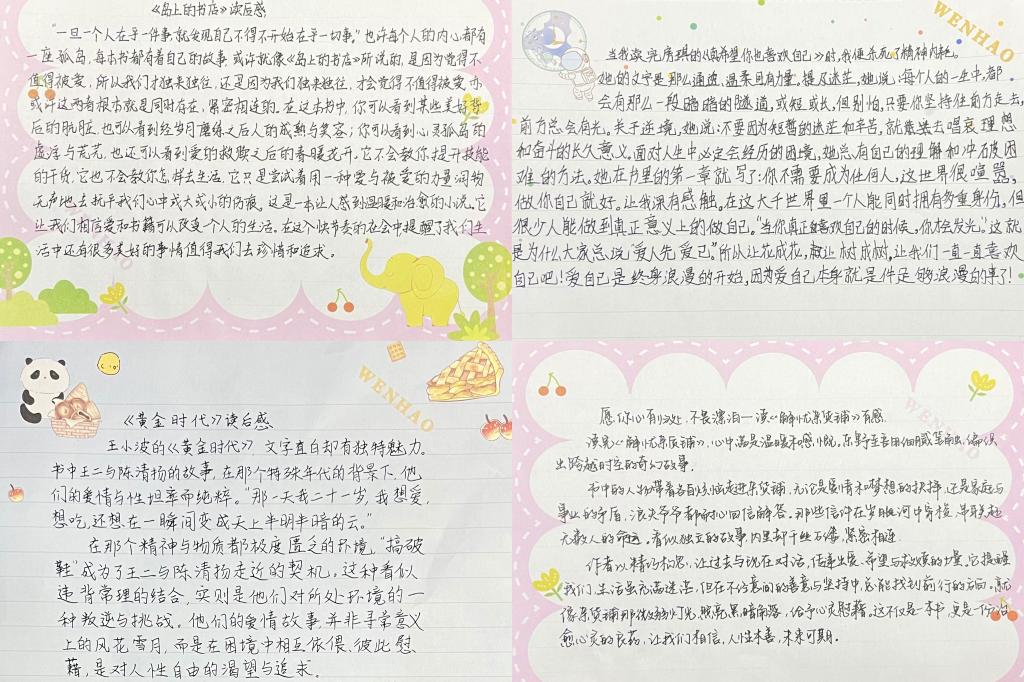 《岛上的书店》读后感
"一旦一个人在乎一件事,就发现自己不得不开始在乎一切事。"也许每个人的内心都有
一座孤岛,每本书都有着自己的故事,或许就像《岛上的书店》所说的,是因为觉得不
值得被爱,所以我们才独来独往,还是因为我们独来独往,才会觉得不值得被爱,亦
或许这两者根本就是同时存在,紧密相连的。在这本书中,你可以看到某些美好背
后的肮脏,也可以看到经岁月磨练之后人的成熟与宽容;你可以看到心灵孤岛的
虚浮与荒芜,也还可以看到爱的救赎之后的春暖花开。它不会教你提升技能
的干货,它也不会教你怎样去生活,它只是尝试着用一种爱与被爱的力量润物
无声地去抚平我们心中或大或小的伤痕。这是一本让人感到温暖和治愈的小说,它
让我们相信爱和书籍可以改变一个人的生活。在这个快节奏的社会中提醒了我们生
活中还有很多美好的事情值得我们去珍惜和追求。
WENHAO
当我读完房琪的《真希望你也喜欢自己》时,我便杀死了精神内耗。
她的文字是那么通透、温柔且有力量。提及迷茫,她说:每个人的一生中,都
会有那么一段暗暗的隧道,或短或长,但别怕,只要你坚持往前方走去,
前方总会有光。关于逆境,她说:不要因为短暂的迷茫和辛苦,就想去唱衰理想
和奋斗的长久意义。面对人生中必定会经历的困境,她总有自己的理解和冲破困
难的方法。她在书里的第一章就写了:你不需要成为任何人,这世界很喧嚣,
做你自己就好。让我深有感触。在这大千世界里一个人能同时拥有多重身份,但
很少人能做到真正意义上的做自己。"当你真正喜欢自己的时候,你才会发光。"这就
是为什么大家总说"爱人先爱己"。所以让花成花,就让树成树,让我们一直一直喜欢
自己吧!爱自己是终身浪漫的开始,因为爱自己本身就是件足够浪漫的事了!
WENHAO
《黄金时代》读后感
王小波的《黄金时代》,文字直白却有独特魅力。
书中王二与陈清扬的故事,在那个特殊年代的背景下,他
们的爱情与性坦率而纯粹。"那一天我二十一岁,我想爱,
想吃,还想在一瞬间变成天上半明半暗的云。"
在那个精神与物质都极度匮乏的环境,"搞破
鞋"成为了王二与陈清扬走近的契机。这种看似
违背常理的结合,实则是他们对所处环境的一
种叛逆与挑战。他们的爱情故事并非寻常意义
上的风花雪月,而是在困境中相互依偎、彼此慰
藉,是对人性自由的渴望与追求。
WENHAO
愿你心有归处,不畏漂泊—读《解忧杂货铺》有感
读完《解忧杂货铺》,心中满是温暖和感慨,东野圭吾用细腻笔触,编织
出跨越时空的奇幻故事。
书中的人物带着各自烦恼走进杂货铺,无论是爱情和梦想的抉择,还是家庭与
事业的矛盾,浪矢爷爷都耐心回信解答。那些信件在岁月河中穿梭,串联起
无数人的命运。看似独立的故事,内里却千丝万缕,紧密相连。
作者以精巧构思,让过去与现在对话,传递出爱、希望与救赎的力量,它提醒
我们,生活虽充满迷茫,但在不经意间的善意与坚持中,总能找到前行的方向。就
像杂货铺那微弱灯光,照亮黑暗角落,给予心灵慰藉。这不仅是一本书,更是一份治
愈心灵的良药,让我们相信,人性本善,未来可期。